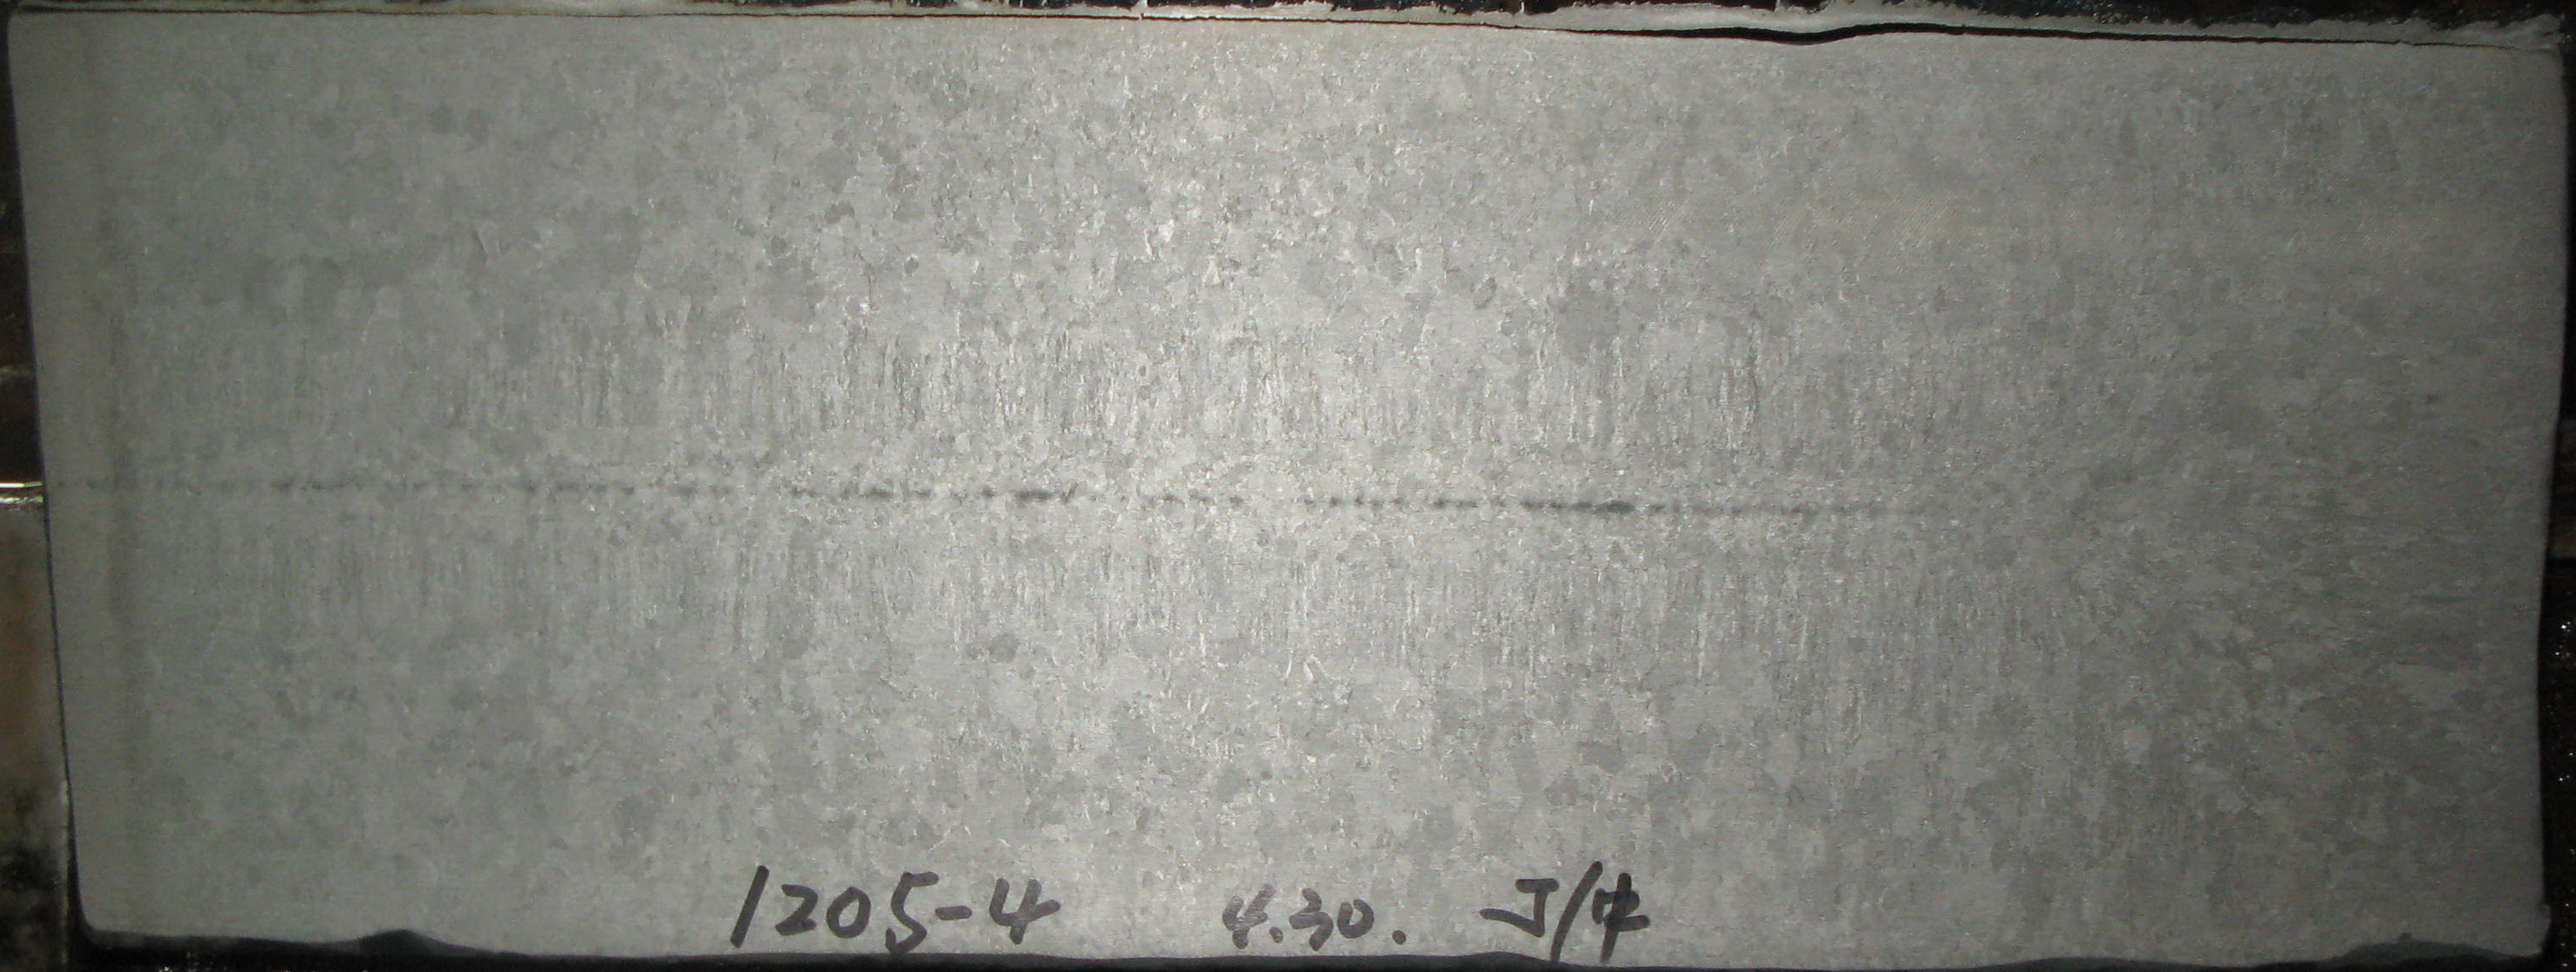 1205-4 4.30. J/中